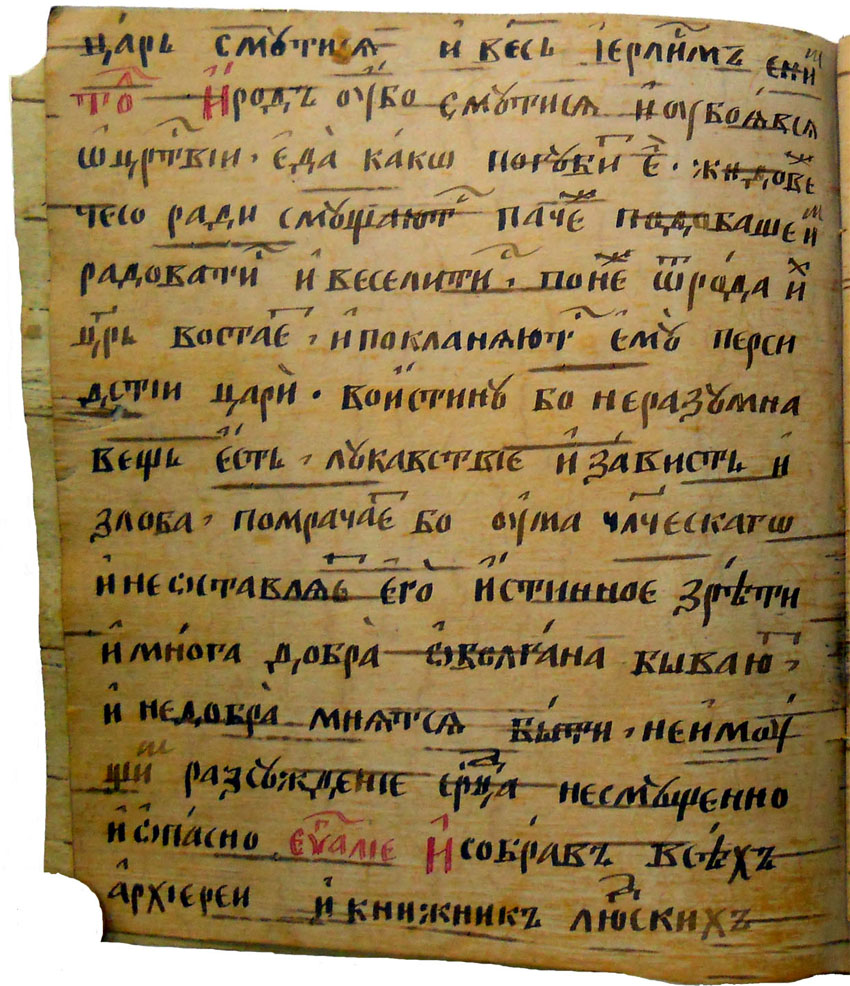 ца́рь смꙋти́сѧ и҆ ве́сь і҆ерⷭ҇ли́мъ
то҇ И҆́родъ ᲂу҆́бо смꙋти́сѧ и҆ ᲂу҆боѧ́всѧ
ѿ црⷭ҇твіи · є҆да̀ ка́кѡ погꙋби́тⸯ є҆̀ · жи́дове
чесо̀ ради смꙋща́ютⸯ па́че подоба́ше и҆мⸯ
ра́доватиⷭ҇ и҆ весели́тиⷭ҇, поне́же ѿ ро́да и҆́хⸯ
цр҃ь воста̀етⸯ, и҆ покланѧ́ютⸯ є҆мꙋ̀ перси
дстіи царѝ · вои́стинꙋ бо неразꙋмна
вещь є҆́сть, лꙋка́вствїе и҆ за́висть и҆
злоба, помрача́етⸯ бо ᲂу҆ма чл҃ческагѡ
и҆ не ѡ҆ставлѧ́етⸯ є҆го̀ и҆́стинное зрѣ́ти
и҆ мно́га добра̀ ѡ҆болга́на быва́ютⸯ,
и҆ недобра̀ мнѧ́тсѧ бы́ти, не и҆мᲂу́
щимⸯ разсꙋжде́нїе се́рдца несмꙋще́нно
и҆ ѻ҆па́сно є҆ѵⷢ҇алїе И҆ собра́въ всѣ́хъ
а҆рхїереи и҆ книжникъ людⷭ҇скихъ